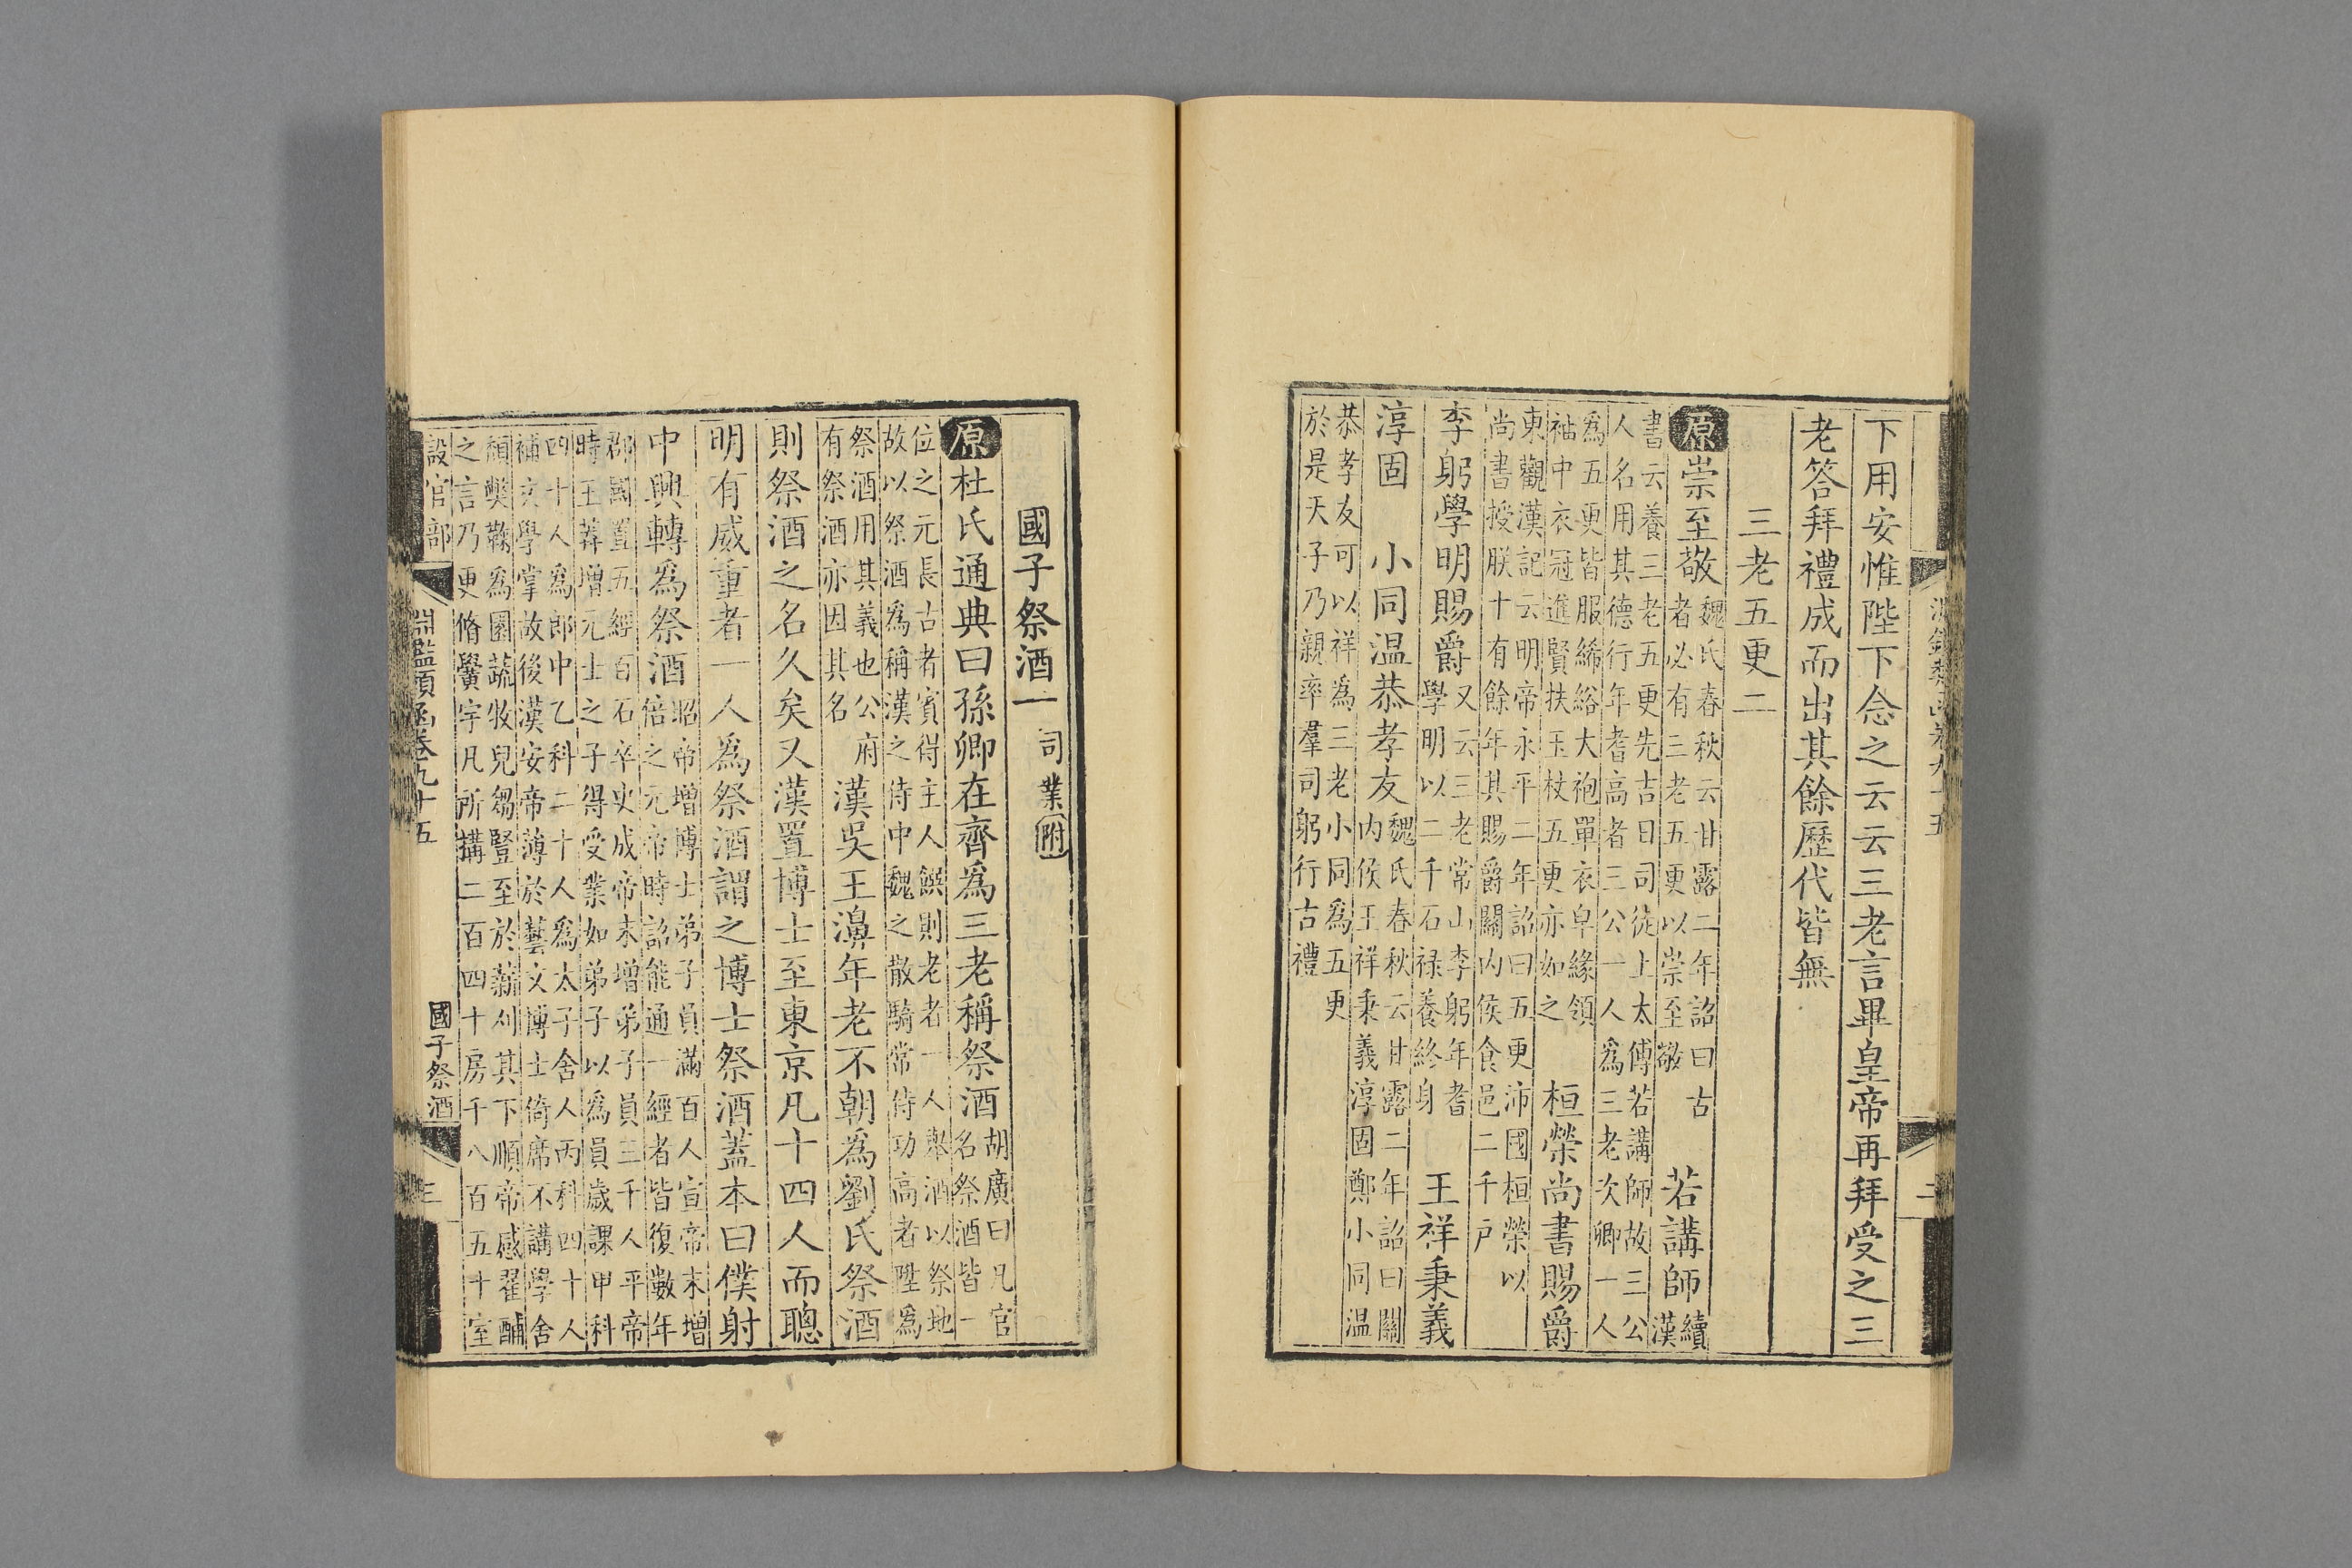 下用安惟陛下念之云云三老言畢皇帝再拜受之三
老答拜禮成而出其餘歷代皆無
三老五更二
原崇至敬
魏氏春秋云甘露二年詔曰古
者必有三老五更以崇至敬
若講師
續
漢
書云養三老五更先吉日司徒上太傅若講師故三公
人名用其德行年耆高者三公一人爲三老次卿一人
爲五更皆服絺綌大袍單衣皁緣領
袖中衣冠進賢扶玉杖五更亦如之
桓榮尚書賜爵
東觀漢記云明帝永平二年詔曰五更沛國桓榮以
尚書授朕十有餘年其賜爵關内侯食邑二千戸
李躬學明賜爵
又云三老常山李躬年耆
學明以二千石禄養終身
王祥秉義
淳固　小同温恭孝友
魏氏春秋云甘露二年詔曰關
内侯王祥秉義淳固鄭小同温
恭孝友可以祥爲三老小同爲五更
於是天子乃親率羣司躬行古禮
國子祭酒一　司業附
原杜氏通典曰孫卿在齊爲三老稱祭酒
胡廣曰凡官
名祭酒皆一
位之元長古者賓得主人饌則老者一人舉酒以祭地
故以祭酒爲稱漢之侍中魏之散騎常侍功高者陞爲
祭酒用其義也公府
有祭酒亦因其名
漢吳王濞年老不朝爲劉氏祭酒
則祭酒之名久矣又漢置博士至東京凡十四人而聰
明有威重者一人爲祭酒謂之博士祭酒蓋本曰僕射
中興轉爲祭酒
昭帝增博士弟子員滿百人宣帝末增
倍之元帝時詔能通一經者皆復數年
郡國置五經百石卒史成帝末增弟子員三千人平帝
時王莽增元士之子得受業如弟子以爲員歲課甲科
四十人爲郎中乙科二十人爲太子舍人丙科四十人
補文學掌故後漢安帝薄於藝文博士倚席不講學舍
頹獘鞠爲園蔬牧兒蒭豎至於薪刈其下順帝感翟酺
之言乃更脩黌宇凡所搆二百四十房千八百五十室
設官部　淵鑑類函卷九十五　國子祭酒　三